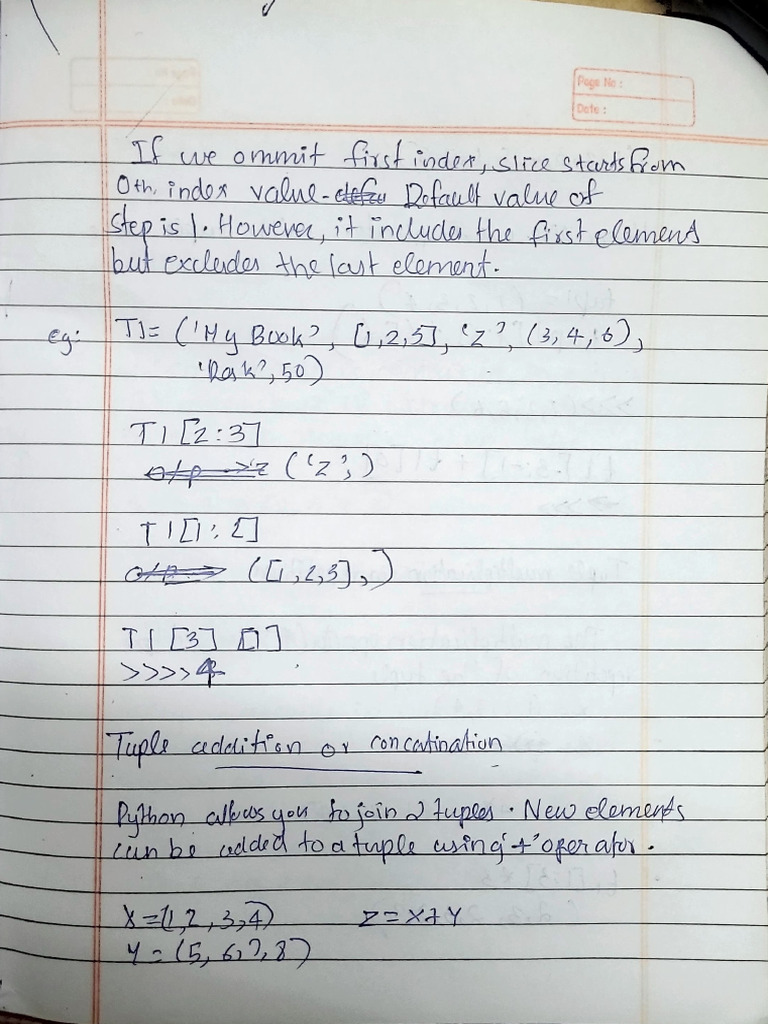 Page No :
Date :
If we ommit first index, slice starts from
0th index value. Default value of
step is 1. However, it includes the first element
but excludes the last element.
eg: T1= ('My Book', [1,2,5], 'Z', (3,4,6),
'Rak', 50)
T1[2:3]
o/p → z ('Z',)
T1[1:2]
o/p → ([1,2,3],)
T1[3] [1]
>>>>4
Tuple addition or concatination
Python allows you to join 2 tuples. New elements
can be added to a tuple using '+' operator.
X=(1,2,3,4) Z=X+Y
Y=(5,6,7,8)